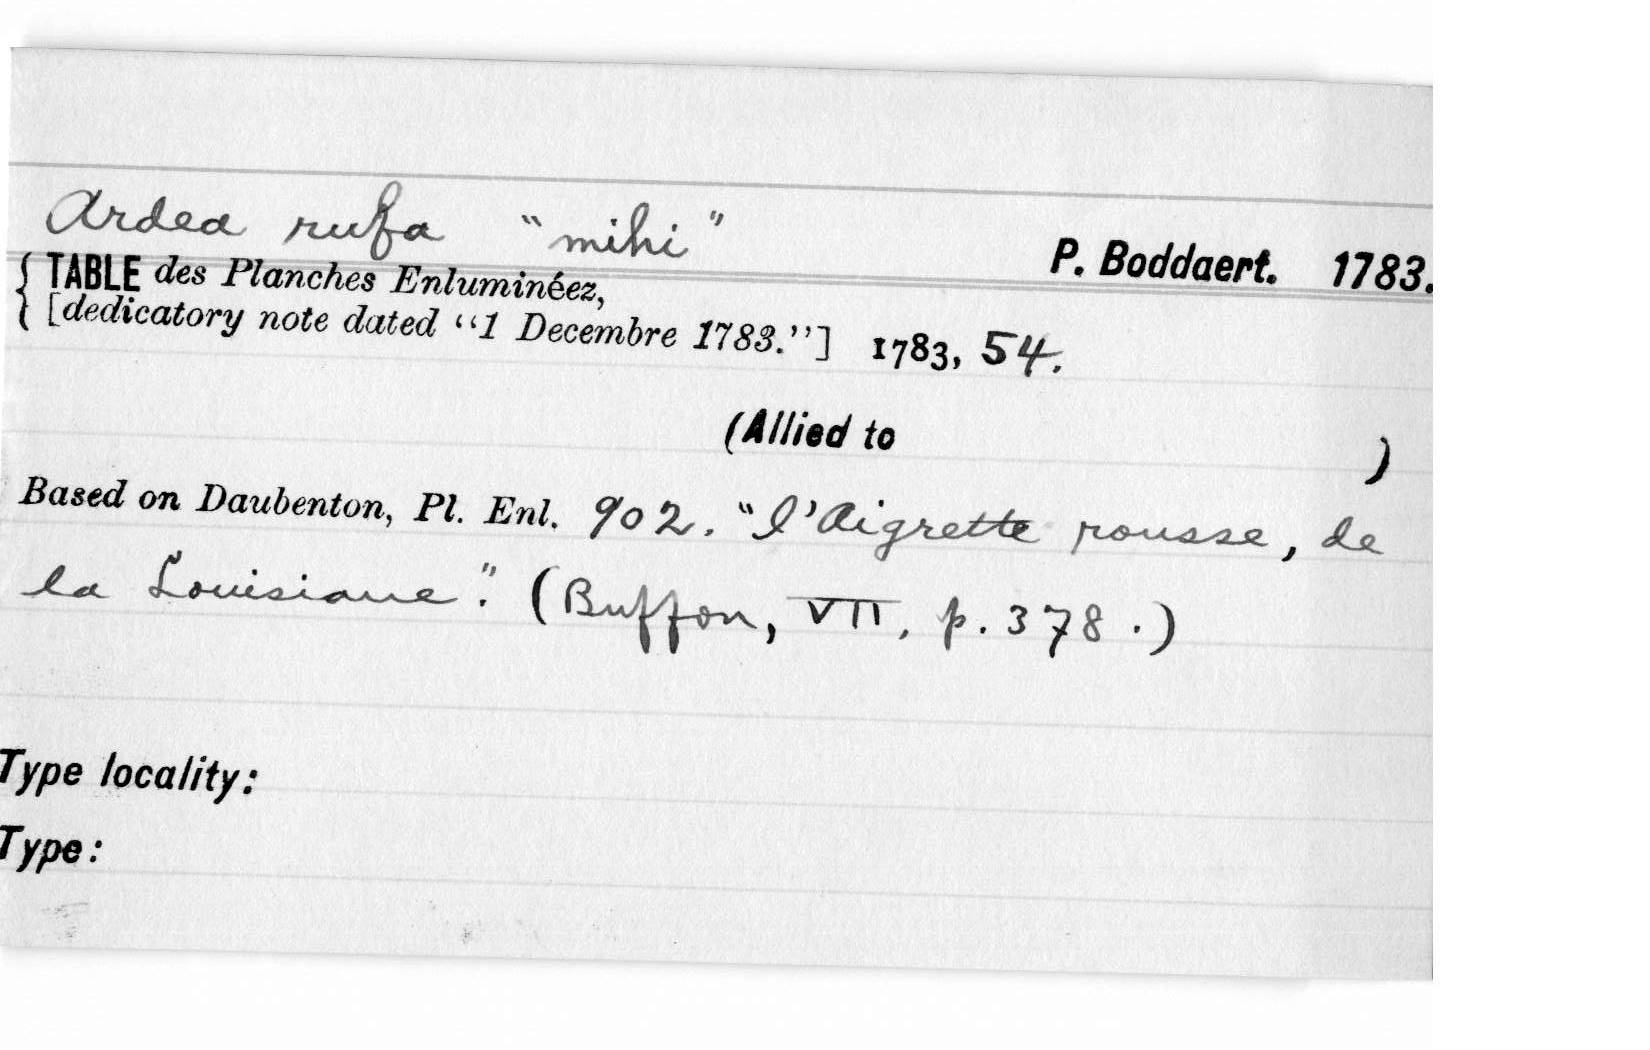 Ardea rufa "mihi"
P. Boddaert. 1783.
{ TABLE des Planches Enluminéez,
{ [dedicatory note dated "1 Decembre 1783."] 1783, 54.
(Allied to )
Based on Daubenton, Pl. Enl. 902. "l'Aigrette rousse, de
la Louisiane". (Buffon, VII, p. 378.)
Type locality:
Type: